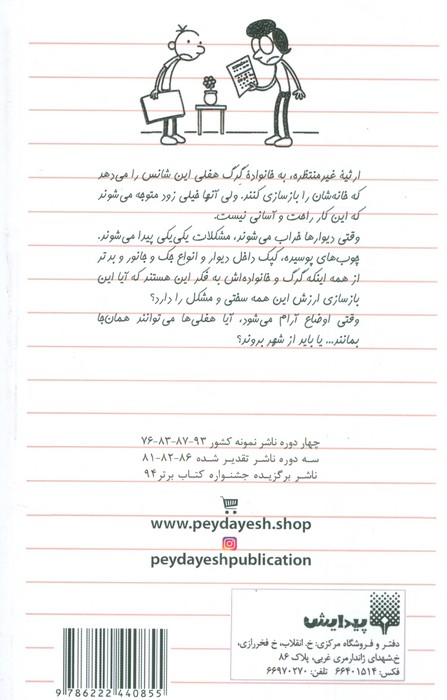 ارثیهٔ غیرمنتظره، به خانوادهٔ گرگ هفلی این شانس را می‌دهد
که خانه‌شان را بازسازی کنند. ولی آنها خیلی زود متوجه می‌شوند
که این کار راحت و آسانی نیست.
وقتی دیوارها خراب می‌شوند، مشکلات یکی‌یکی پیدا می‌شوند.
چوب‌های پوسیده، کپک داخل دیوار و انواع جک و جانور و بدتر
از همه اینکه گرگ و خانواده‌اش به فکر این هستند که آیا این
بازسازی ارزش این همه سختی و مشکل را دارد؟
وقتی اوضاع آرام می‌شود، آیا هفلی‌ها می‌توانند همان‌جا
بمانند... یا باید از شهر بروند؟
چهار دوره ناشر نمونه کشور ۹۳-۸۷-۸۳-۷۶
سه دوره ناشر تقدیر شده ۸۶-۸۲-۸۱
ناشر برگزیده جشنواره کتاب برتر ۹۴
www.peydayesh.shop
peydayeshpublication
پیدایش
دفتر و فروشگاه مرکزی: خ. انقلاب، خ فخررازی،
خ‌شهدای ژاندارمری غربی، پلاک ۸۶
فکس: ۶۶۴۰۱۵۱۴ تلفن: ۶۶۹۷۰۲۷۰
9 786222 440855